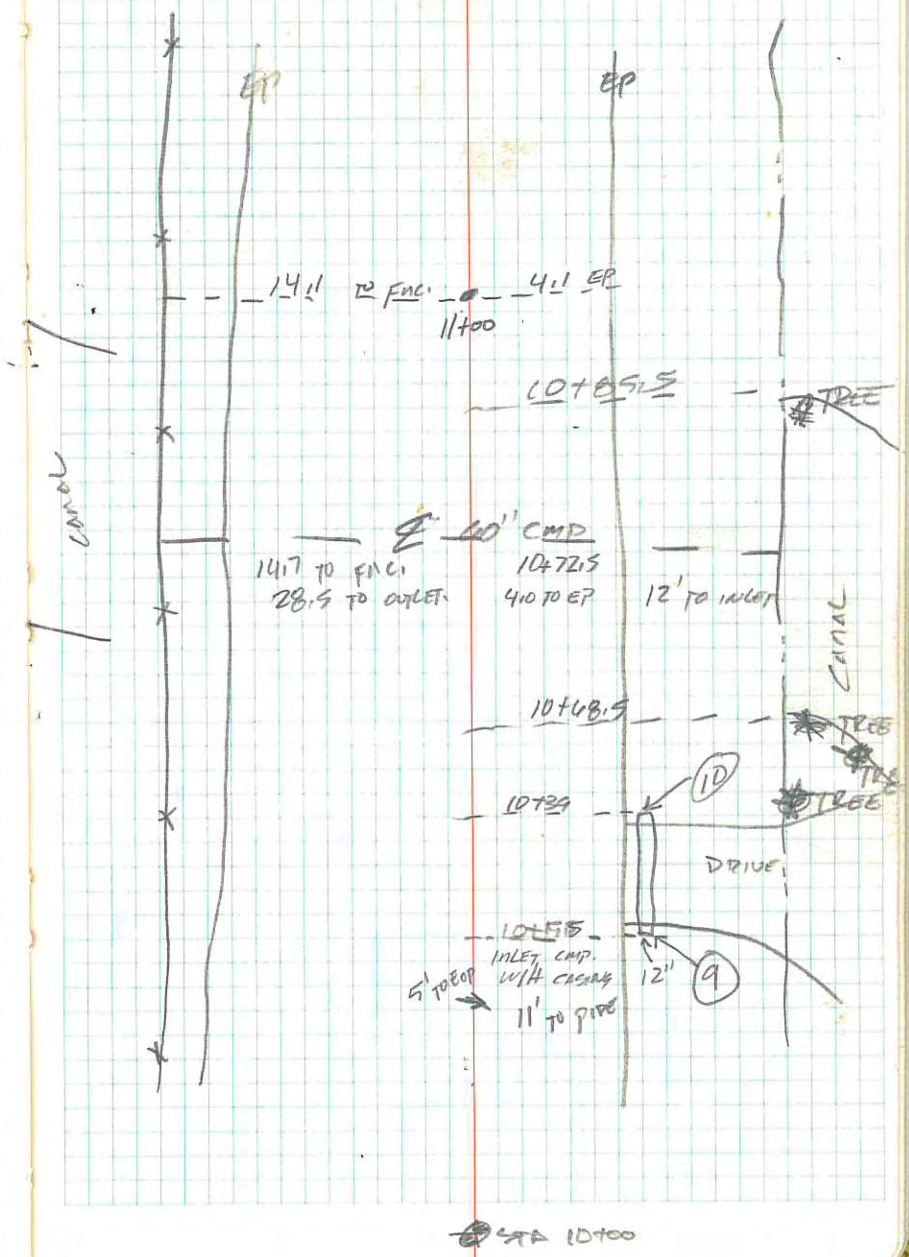 EP
EP
14.1 TO FNC. 4.1 EP
11+00
10+85.5
TREE
CANAL
℄ 60" CMP
14.7 TO FNC. 10+72.5
28.5 TO OUTLET. 4.0 TO EP 12' TO INLET
CANAL
10+48.5
TREE
TREE
10
10+39
TREE
DRIVE
INLET CMP.
W/H CASING 12" 9
5' TO EOP
11' TO PIPE
STA 10+00